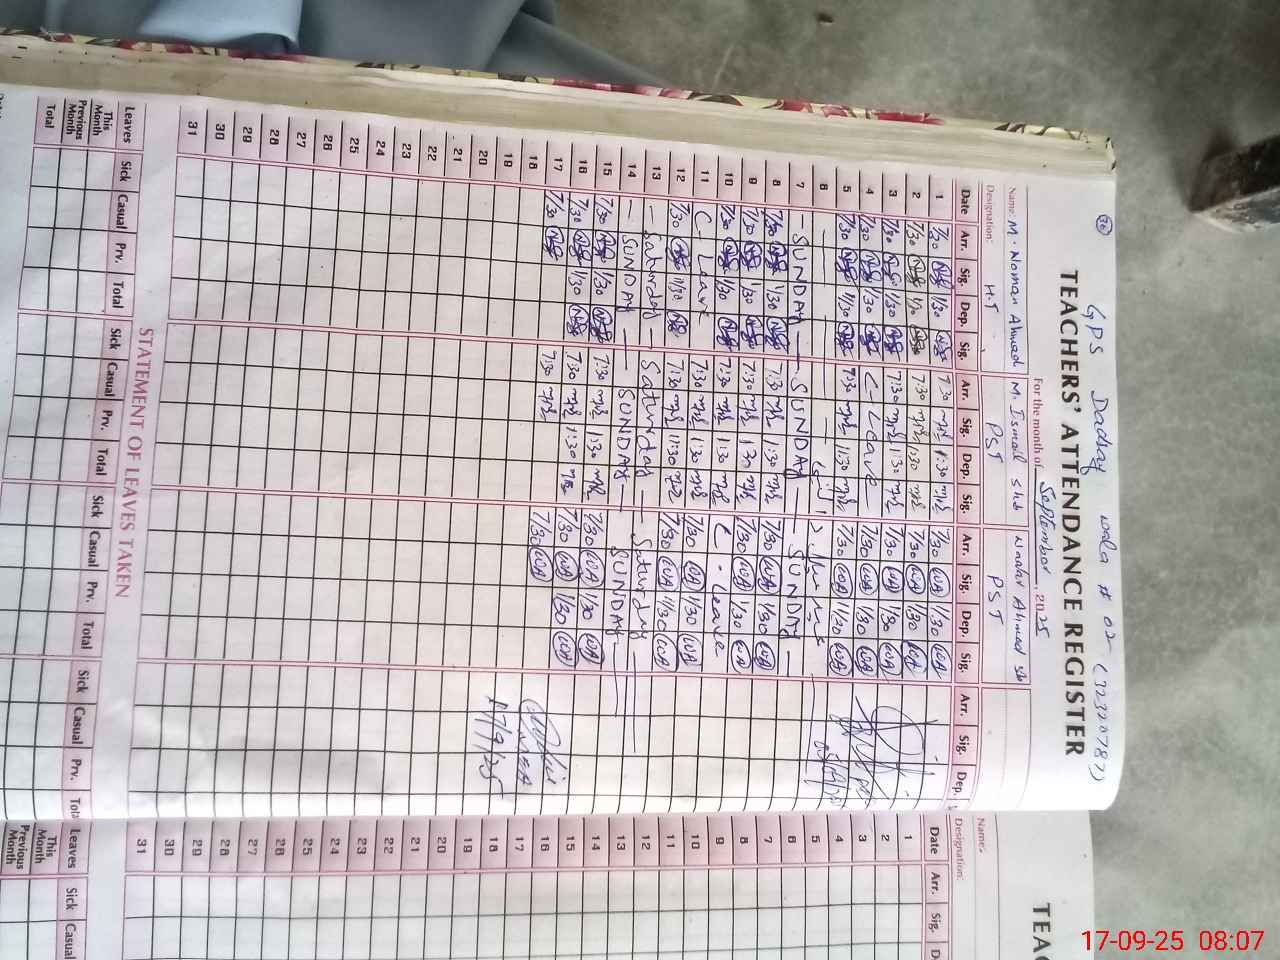 36
GPS Dadhay wala # 02 (32320787)
TEACHERS' ATTENDANCE REGISTER
For the month of September, 2025
Name: M. Noman Ahmad M. Ismail Shb Ahmad Sb
Designation: H.T PST PST
Date Arr. Sig. Dep. Sig. Arr. Sig. Dep. Sig. Arr. Sig. Dep. Sig. Arr. Sig. Dep.
1 7/30 1/30 7:30 1:30 7/30 WA 1/30 WA
2 7/30 1/30 7:30 1:30 7/30 WA 1/30 WA
3 7/30 1/30 7:30 1:30 7/30 WA 1/30 WA
4 7/30 1/30 C-Leave 7/30 WA 1/30 WA
5 7/30 11/30 7:30 11:30 7/30 WA 11/30 WA
6
7 - SUNDAY - SUNDAY - SUNDAY -
8 7/30 1/30 7:30 1:30 7/30 WA 1/30 WA
9 7/30 1/30 7:30 1:30 7/30 WA 1/30 WA
10 7/30 1/30 7:30 1:30 C - Leave
11 C Leave 7:30 1:30 7/30 WA 1/30 WA
12 7/30 11/30 7:30 11:30 7/30 WA 11/30 WA
13 - Saturday - Saturday - Saturday -
14 - SUNDAY - SUNDAY - SUNDAY
15 7/30 1/30 7:30 1:30 7/30 WA 1/30 WA
16 7/30 1/30 7:30 1:30 7/30 WA 1/30 WA
17 7/30 7:30 7/30 WA
18
17/9/25
19
20
21
22
23
24
25
26
27
28
29
30
31
STATEMENT OF LEAVES TAKEN
Leaves Sick Casual Prv. Total Sick Casual Prv. Total Sick Casual Prv. Total Sick Casual Prv.
This Month
Previous Month
Total
TEAC
Name:
Designation:
Date Arr. Sig.
1
2
3
4
5
6
7
8
9
10
11
12
13
14
15
16
17
18
19
20
21
22
23
24
25
26
27
28
29
30
31
Leaves Sick Casual
This Month
Previous Month
17-09-25 08:07